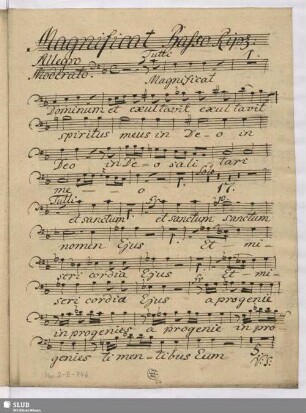 Magnificat Basso Rip:
Allegro Tutti
Moderato. 1.
Magnificat
Dominum et exultavit exultavit
spiritus meus in De-o in
Deo in De-o salutare
Solo
me - - o 17.
Tutti
et sanctum et sanctum sanctum
nomen Ejus Et mi-
seri cordia Ejus Et - mi-
seri cordia Ejus a progenie
in progenies a progenie in pro
genies ti men-tibus Eum
V: S:
Mus. 2-E-746
5
SLUB
Wir führen Wissen.